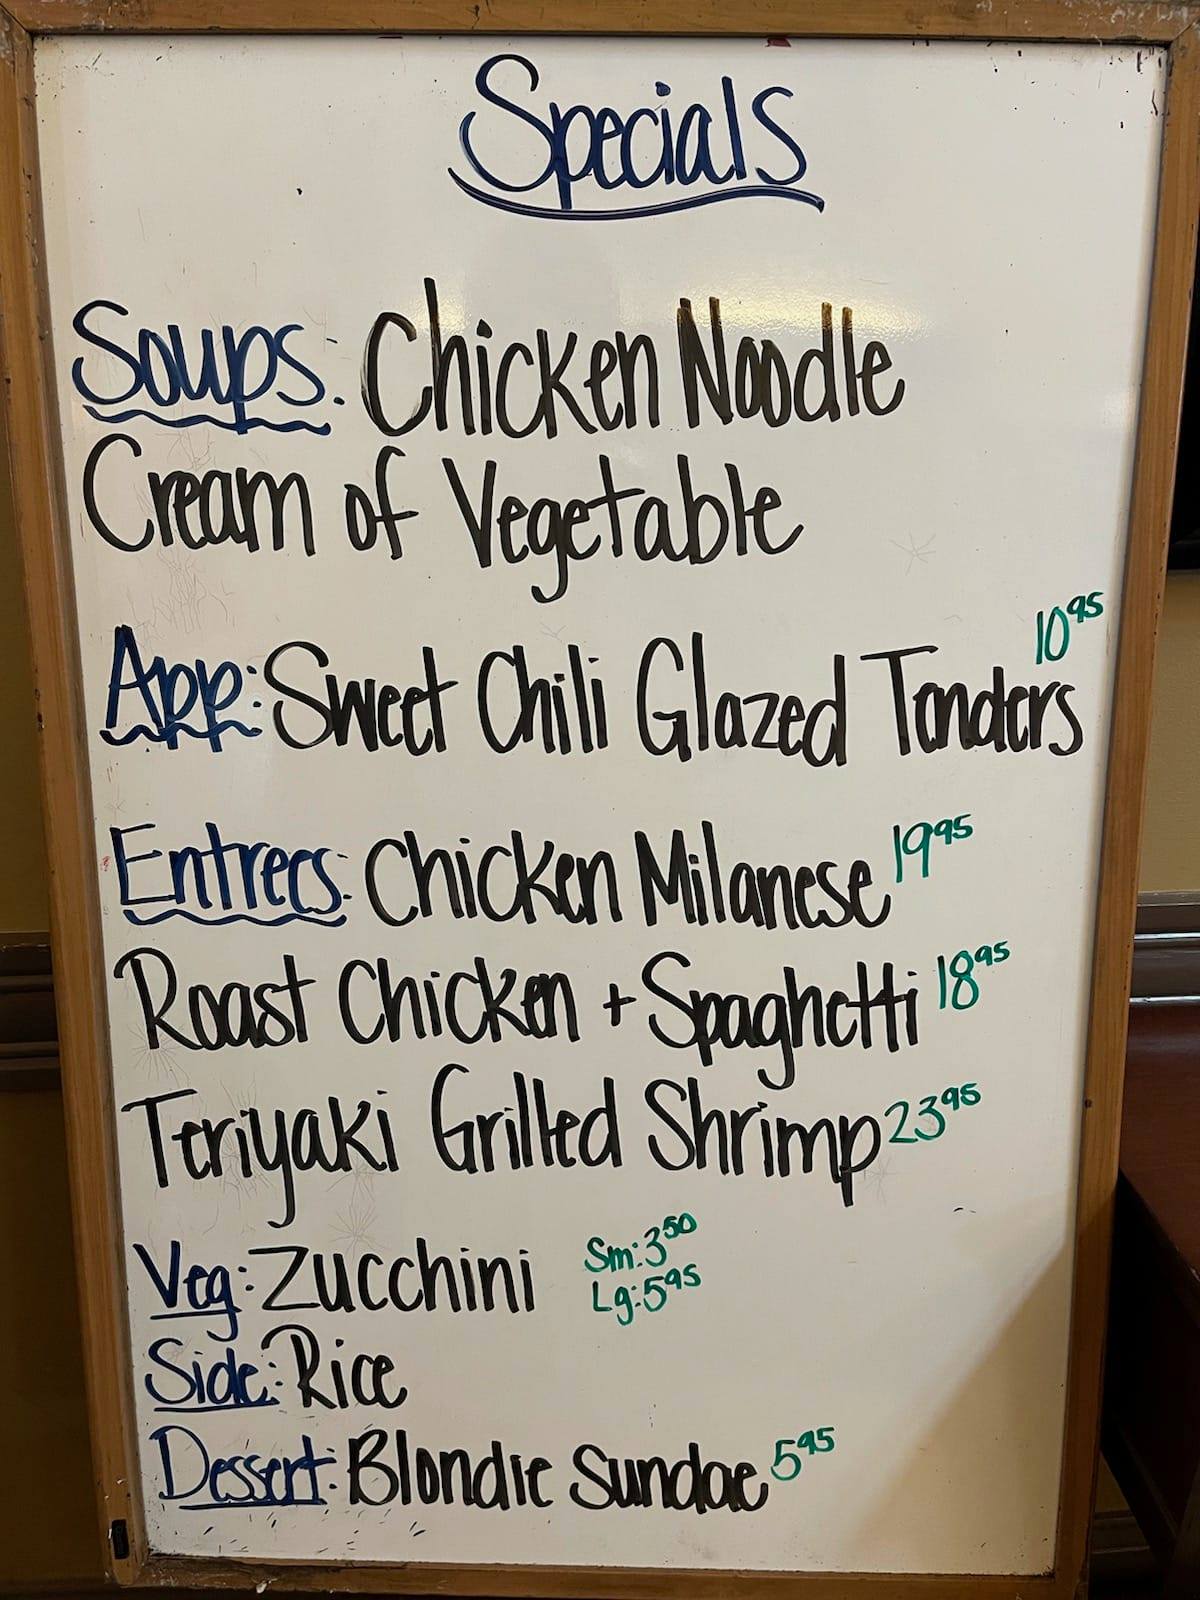 Specials
Soups: Chicken Noodle
Cream of Vegetable
App: Sweet Chili Glazed Tenders 10 95
Entrees: Chicken Milanese 19 95
Roast Chicken + Spaghetti 18 95
Teriyaki Grilled Shrimp 23 95
Veg: Zucchini Sm: 3 50
Lg: 5 95
Side: Rice
Dessert: Blondie Sundae 5 95